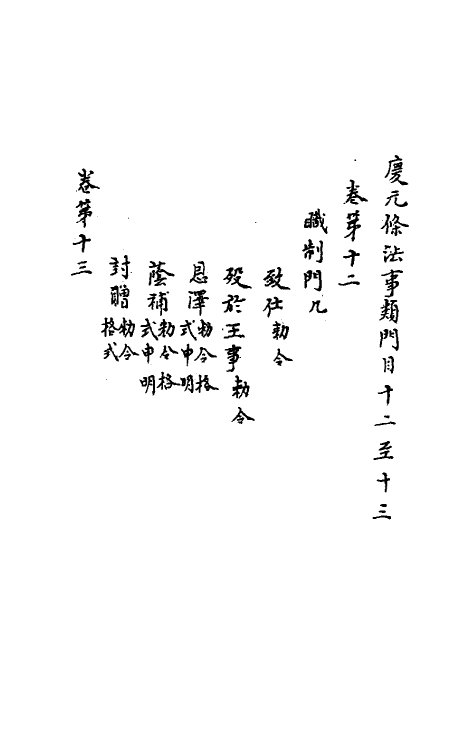 慶元條法事類門目十二至十三
卷第十二
職制門九
致仕勅令
殁於王事勅令
恩澤勅令格式申明
蔭補勅令格式申明
封贈勅令格式
卷第十三